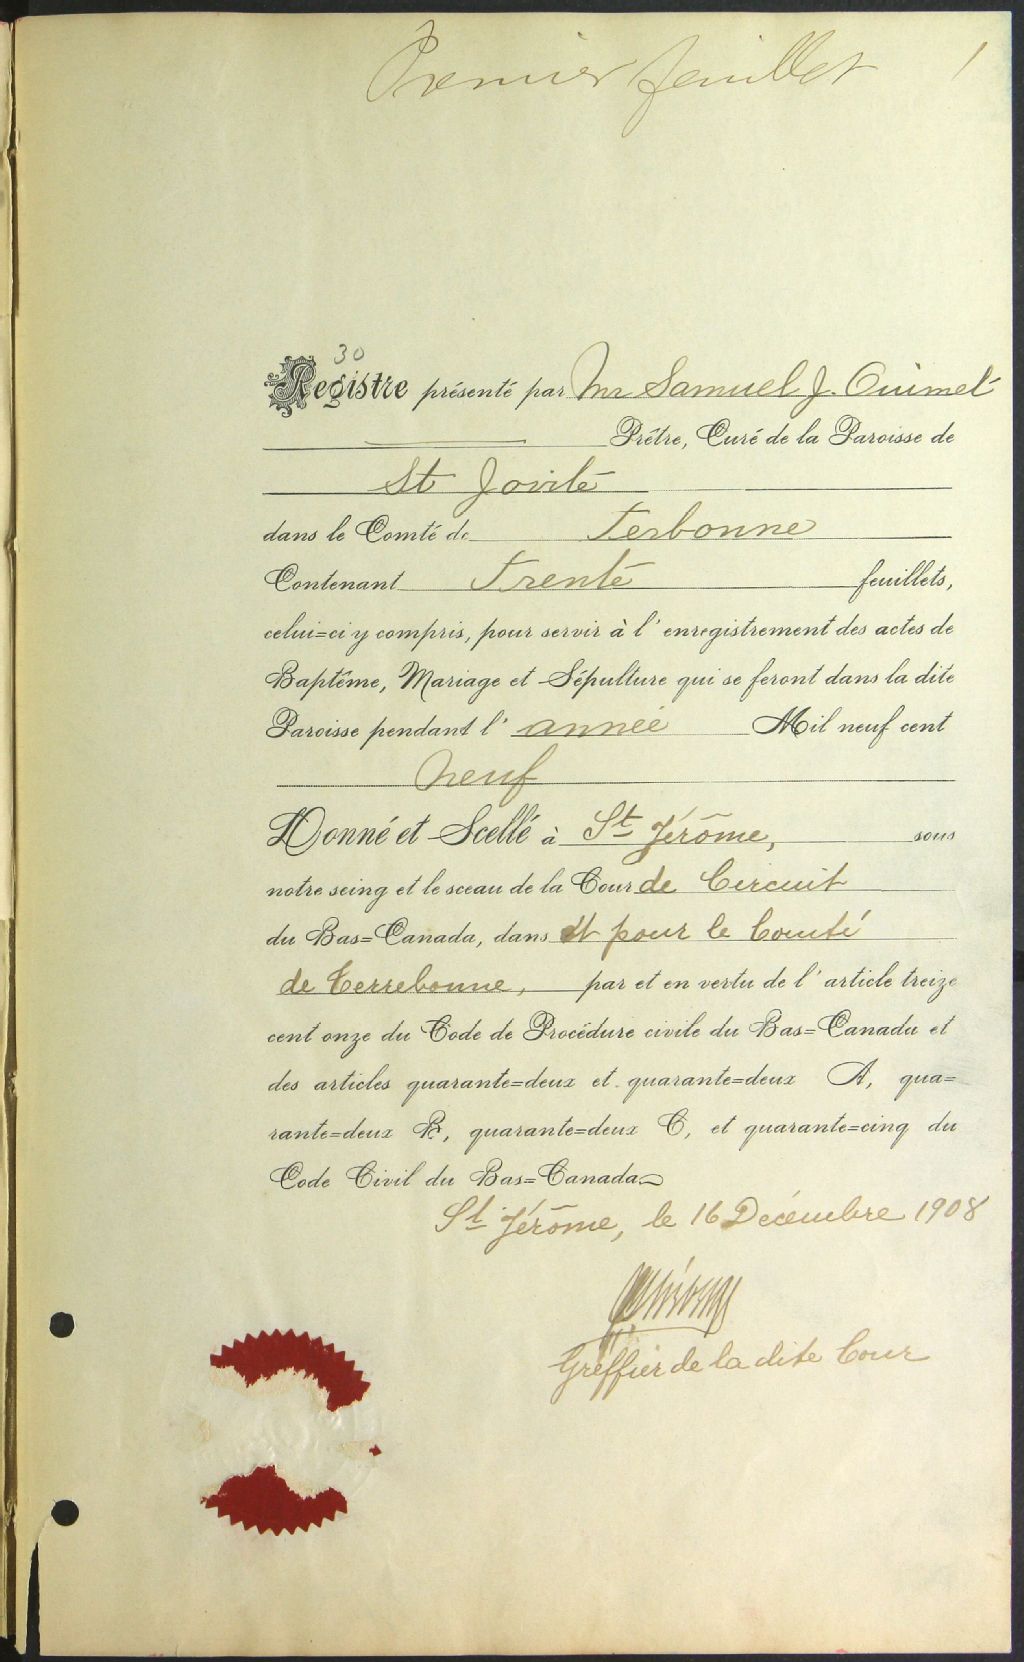 Premier feuillet 1
30
Registre présenté par Mr Samuel J. Ouimet
Prêtre, Curé de la Paroisse de
St Jovite
dans le Comté de Terbonne
Contenant Trente feuillets,
celui=ci y compris, pour servir à l'enregistrement des actes de
Baptême, Mariage et Sépulture qui se feront dans la dite
Paroisse pendant l'année Mil neuf cent
neuf
Donné et Scellé à St Jérôme, sous
notre seing et le sceau de la Cour de Circuit
du Bas=Canada, dans et pour le Comté
de Terrebonne, par et en vertu de l'article treize
cent onze du Code de Procédure civile du Bas=Canada et
des articles quarante=deux et quarante=deux A, qua=
rante=deux B, quarante=deux C, et quarante=cinq du
Code Civil du Bas=Canada
St Jérôme, le 16 Décembre 1908
Greffier de la dite Cour